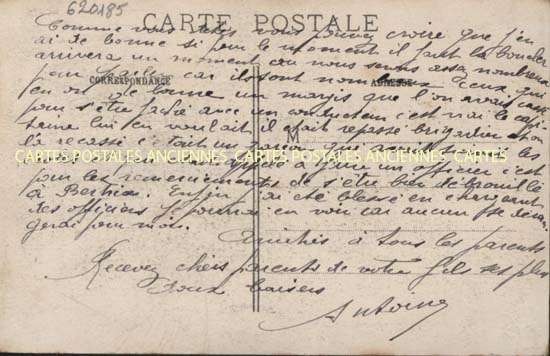 620185
CARTE POSTALE
Comme vous dites vous pouvez croire que j'en
ai de bonne si pour le moment il faut la boucler
arrivera un moment où nous serons assez nombreux
pour car ils sont nombreux ceux qui
CORRESPONDANCE
ADRESSE
en ont de bonne un margis que l'on avait cassé
pour s'être fâché avec un conducteur c'est vrai le capi-
taine lui en voulait il était repassé brigadier et on
l'a recassé
CARTES POSTALES ANCIENNES CARTES POSTALES ANCIENNES CARTES
à un officier c'est
pour les remerciements de s'être bien débrouillé
à Enfin j'ai été blessé en chargeant
des officiers je pourrai en voir car aucun se déran-
gerai pour moi.
Amitiés à tous les parents
Recevez chers parents de votre fils ses plus
doux baisers
Antoine